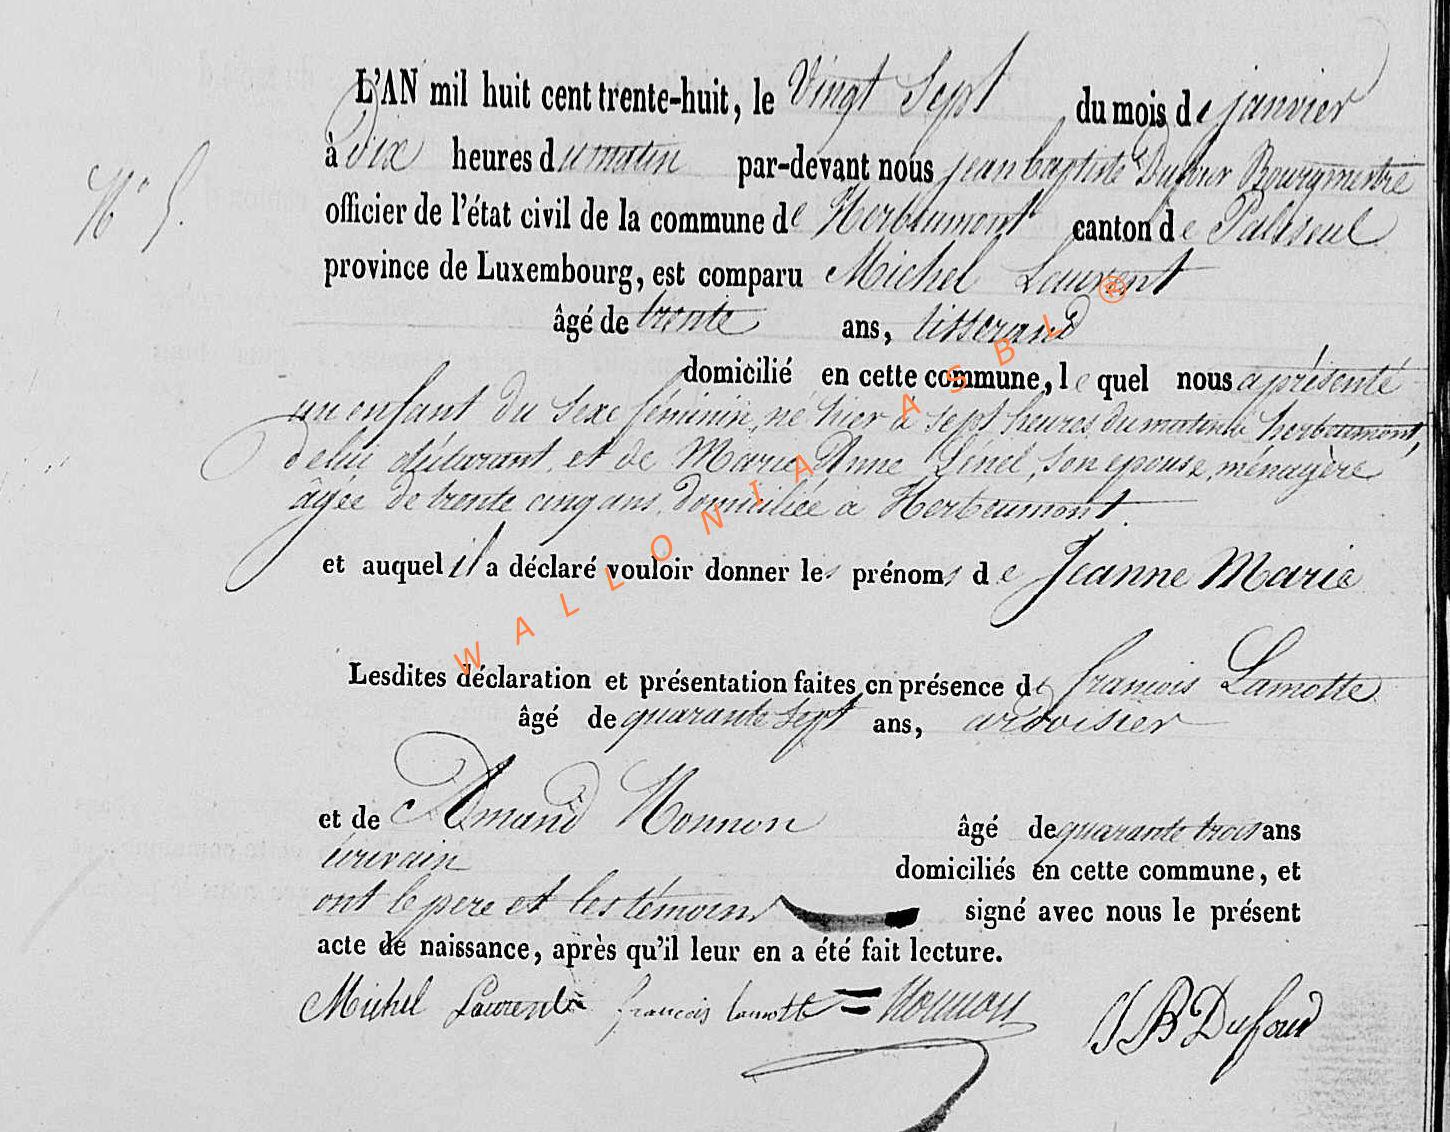 L'AN mil huit cent trente-huit, le Vingt Sept du mois de janvier
N° 5.
à dix heures du matin par-devant nous jean baptiste Dufour Bourgmestre
officier de l'état civil de la commune de Herbeumont canton de Paliseul
province de Luxembourg, est comparu Michel Laurent
âgé de trente ans, tisserand
domicilié en cette commune, lequel nous a présenté
un enfant du sexe féminin, né hier à sept heures du matin à herbeumont,
de lui déclarant, et de Marie Anne Lenel, son epouse, ménagère
âgée de trente cinq ans, domiciliée à Herbeumont.
et auquel il a déclaré vouloir donner les prénoms de Jeanne Marie
Lesdites déclaration et présentation faites en présence de francois Lamotte
âgé de quarante sept ans, ardoisier
et de Amand Nonnon âgé de quarante trois ans
écrivain domiciliés en cette commune, et
ont le pere et les témoins signé avec nous le présent
acte de naissance, après qu'il leur en a été fait lecture.
Michel Laurent francois lamotte Nonnon JB Dufour
WALLONIA ASBL ®